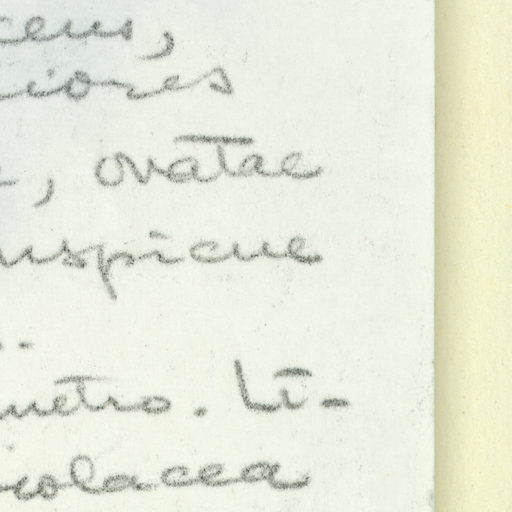 cens,
iores
, ovatae
nspicue
metro. Li-
olacea